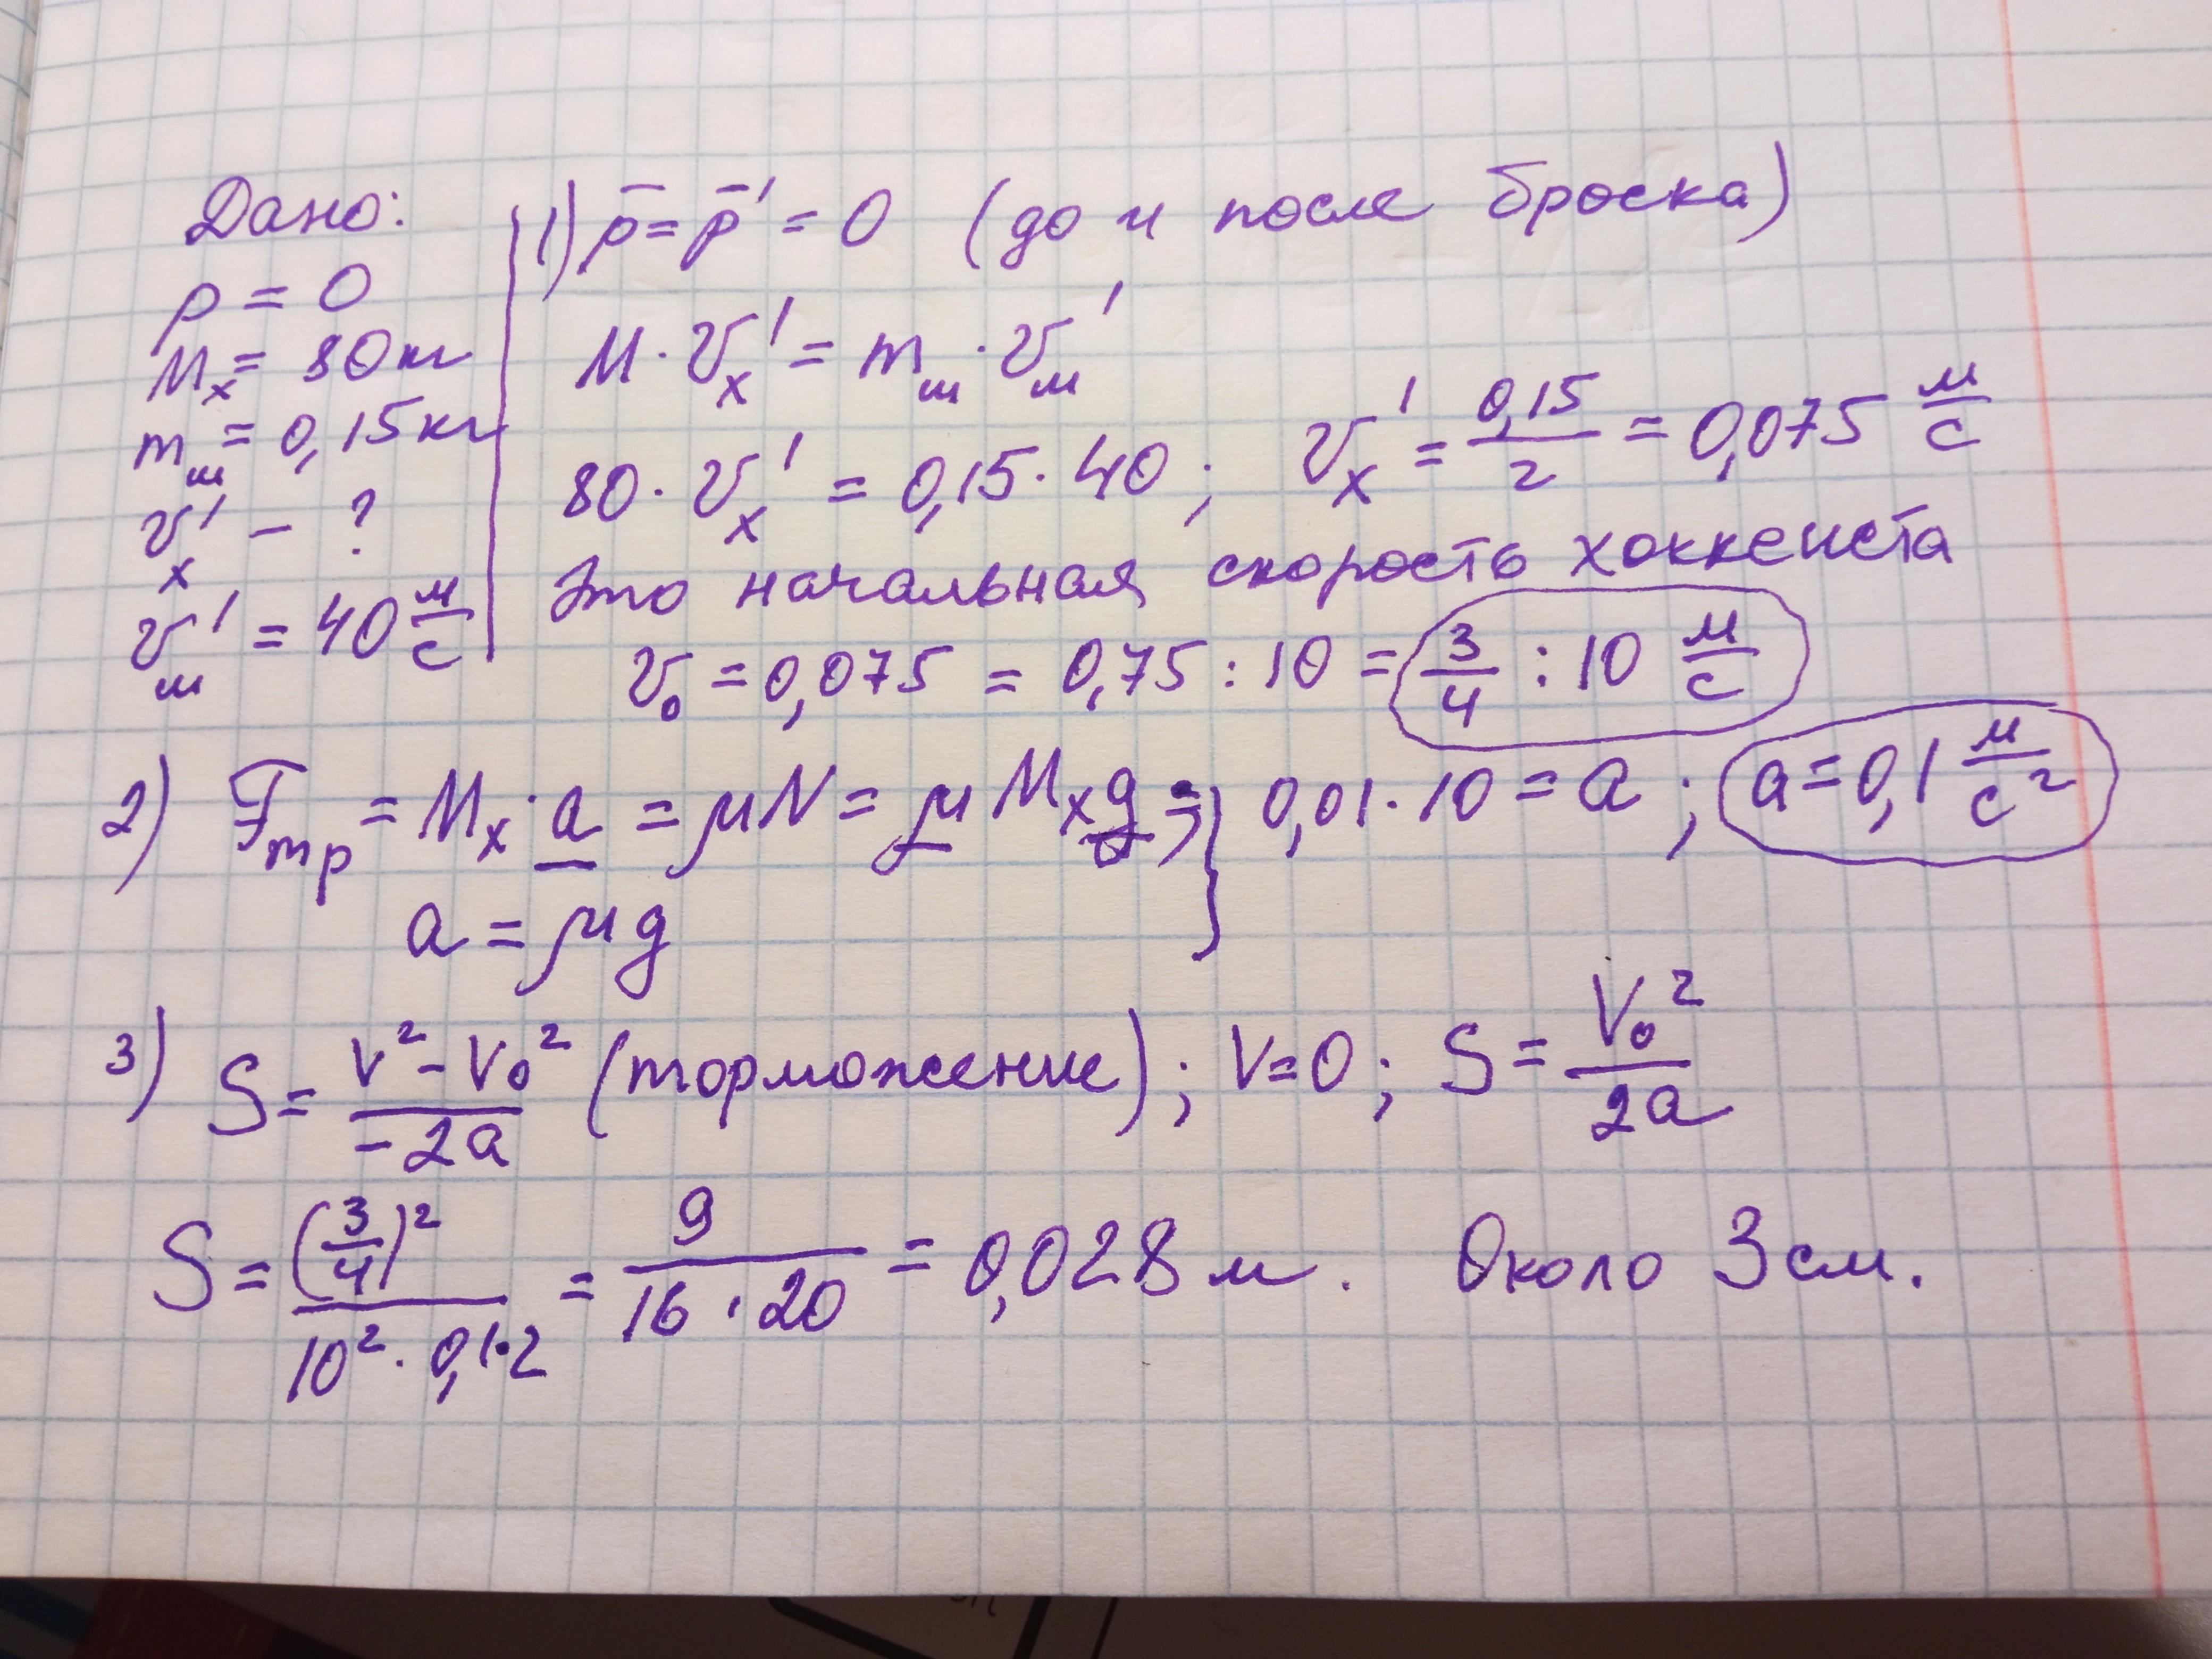 Дано:
p = 0
Mx = 80 кг
mш = 0,15 кг
vx' - ?
vш' = 40 м/с
1) p̄ = p̄' = 0 (до и после броска)
M · vx' = mш · vш'
80 · vx' = 0,15 · 40 ; vx' = 0,15/2 = 0,075 м/с
Это начальная скорость хоккеиста
v₀ = 0,075 = 0,75 : 10 = 3/4 : 10 м/с
2) Fтр = Mx · a = μN = μ Mx g ; } 0,01 · 10 = a ; a = 0,1 м/с²
a = μg
3) S = (V² - V₀²)/(-2a) (торможение) ; V = 0 ; S = V₀²/2a
S = (3/4)²/(10² · 0,1 · 2) = 9/(16 · 20) = 0,028 м. Около 3 см.